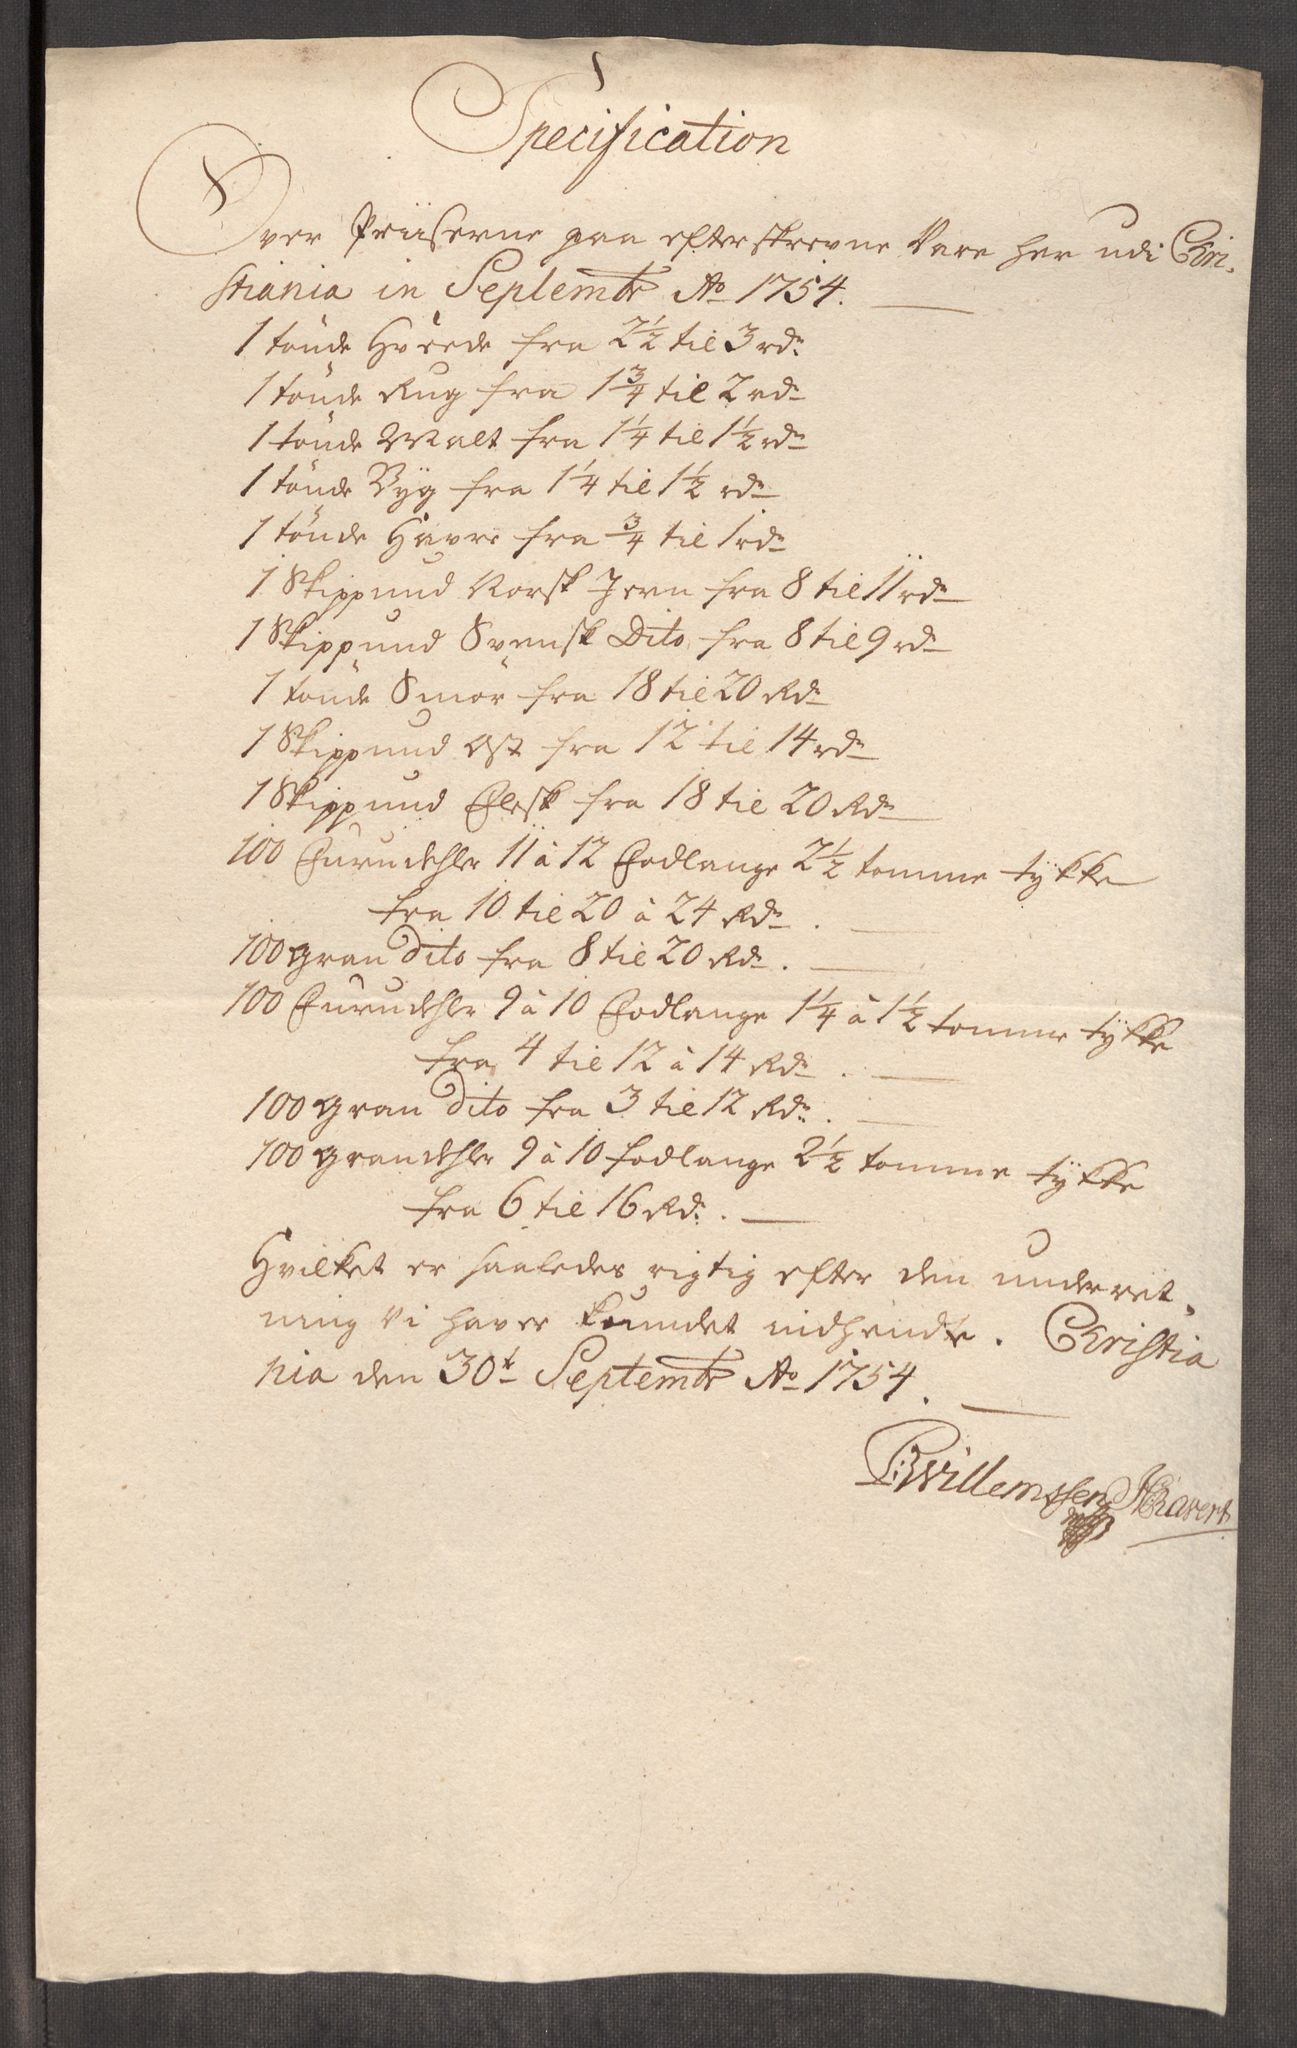 Specification
Over Priiserne paa efterskrevne Vare her udi Chri-
stiania in Septembr Ao 1754.
1 tønde Hvede fra 2½ til 3 rdr
1 tønde Rug fra 1¾ til 2 rdr
1 tønde Malt fra 1¼ til 1½ rdr
1 tønde Byg fra 1¼ til 1½ rdr
1 tønde Havre fra ¾ til 1 rdr
1 Skippund Norsk Jern fra 8 til 11 rdr
1 Skippund Svensk Dito fra 8 til 9 rdr
1 tønde Smør fra 18 til 20 Rdr
1 Skippund Ost fra 12 til 14 rdr
1 Skippund Flesk fra 18 til 20 Rdr
100 Furudehler 11 à 12 Fodlange 2½ tomme tykke
fra 10 til 20 à 24 Rdr.
100 Gran Dito fra 8 til 20 Rdr.
100 Furudehler 9 à 10 Fodlange 1¼ à 1½ tomme tykke
fra 4 til 12 à 14 Rdr.
100 Gran Dito fra 3 til 12 Rdr.
100 Grandehler 9 à 10 fodlange 2½ tomme tykke
fra 6 til 16 Rdr.
Hvilket er saaledes rigtig efter den underret-
ning vi haver kundet indhendte. Christia
nia den 30t Septembr Ao 1754.
Willemssen